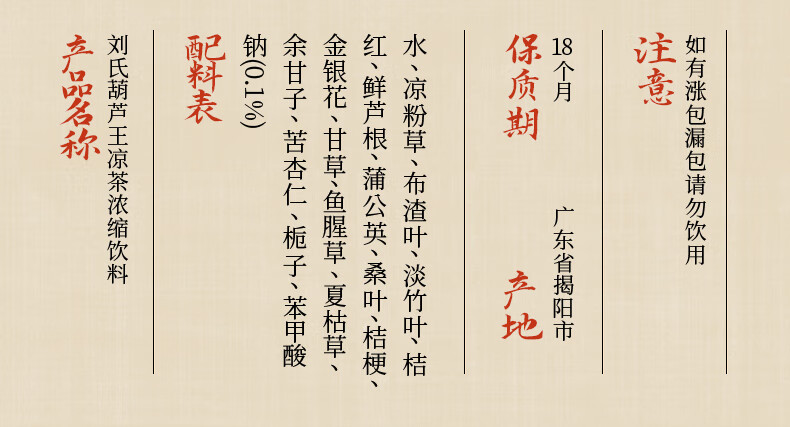 产品名称
刘氏葫芦王凉茶浓缩饮料
配料表
水、凉粉草、布渣叶、淡竹叶、桔
红、鲜芦根、蒲公英、桑叶、桔梗、
金银花、甘草、鱼腥草、夏枯草、
余甘子、苦杏仁、栀子、苯甲酸
钠(0.1%)
保质期
18个月
产地
广东省揭阳市
注意
如有涨包漏包请勿饮用